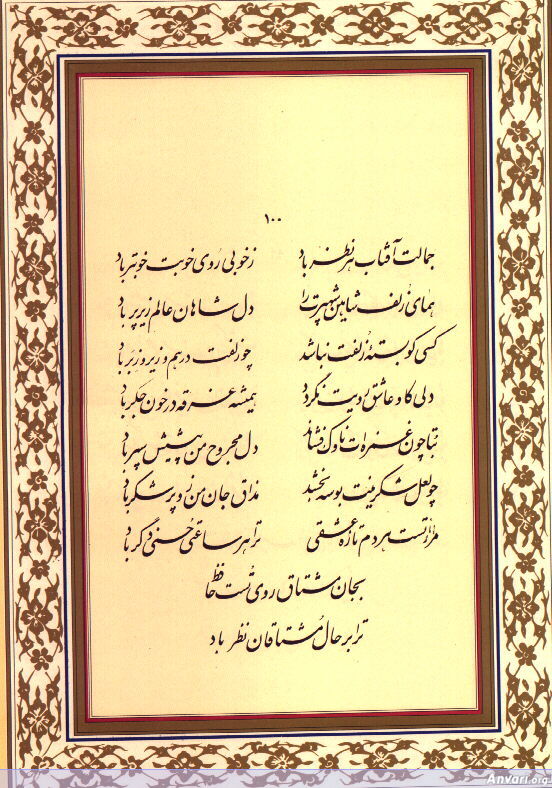 ۱۰۰
جمالت آفتاب هر نظر باد ز خوبی روی خوبت خوبتر باد
همای زلف شاهین شهپرت را دل شاهان عالم زیر پر باد
کسی کو بستهٔ زلفت نباشد چو زلفت درهم و زیر و زبر باد
دلی کاو عاشق رویت نگردد همیشه غرقه در خون جگر باد
بتا چون غمزه‌ات ناوک فشاند دل مجروح من پیشش سپر باد
چو لعل شکرینت بوسه بخشد مذاق جان من زو پر شکر باد
مرا از تست هر دم تازه عشقی ترا هر ساعتی حسنی دگر باد
بجان مشتاق روی تست حافظ
ترا بر حال مشتاقان نظر باد
Anvari.org